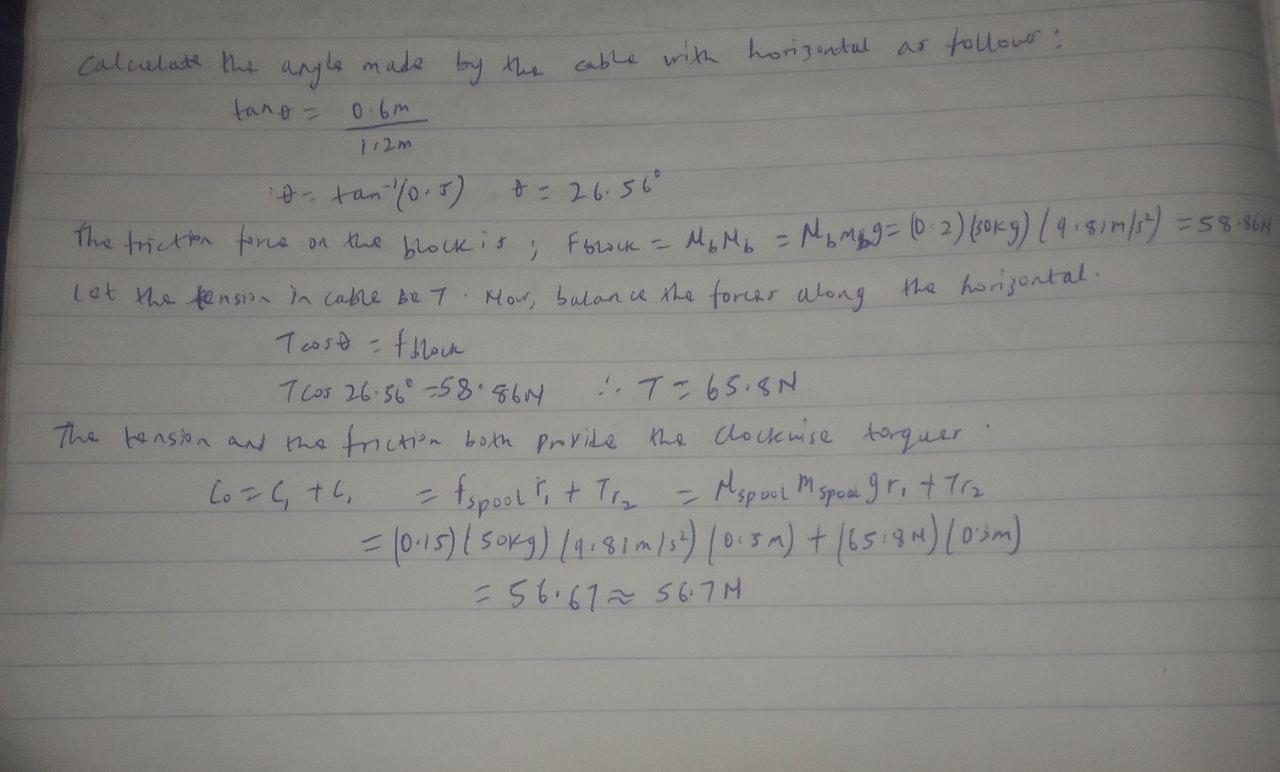 Calculate the angle made by the cable with horizontal as follows:
tanθ = 0.6m
1.2m
∴ θ = tan⁻¹(0.5) θ = 26.56°
The friction force on the block is; Fblock = MbMb = Mbmbg = (0.2)(30kg)(9.81m/s²) = 58.86N
Let the tension in cable be T. Now, balance the forces along the horizontal.
Tcosθ = fblock
Tcos 26.56° = 58.86N ∴ T = 65.8N
The tension and the friction both provide the clockwise torques.
= fspool r₁ + Tr₂ = Mspool mspool gr₁ + Tr₂
= (0.15)(50kg)(9.81m/s²)(0.5m) + (65.8N)(0.3m)
= 56.67 ≈ 56.7N